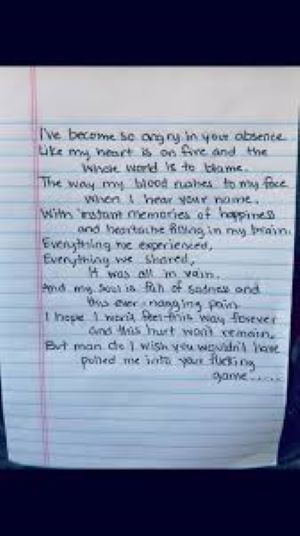 I've become so angry in your absence.
Like my heart is on fire and the
whole world is to blame.
The way my blood rushes to my face
when I hear your name.
With instant memories of happiness
and heartache filling in my brain.
Everything we experienced,
Everything we shared,
It was all in vain.
And my soul is full of sadness and
this ever-nagging pain.
I hope I won't feel this way forever
and this hurt won't remain.
But man do I wish you wouldn't have
pulled me into your fucking
game.....